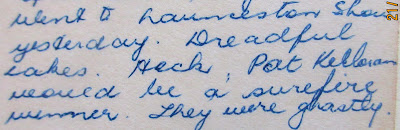 went to Launceston Show
yesterday. Dreadful
cakes. Heck, Pat
would be a surefire
winner. They were ghastly.